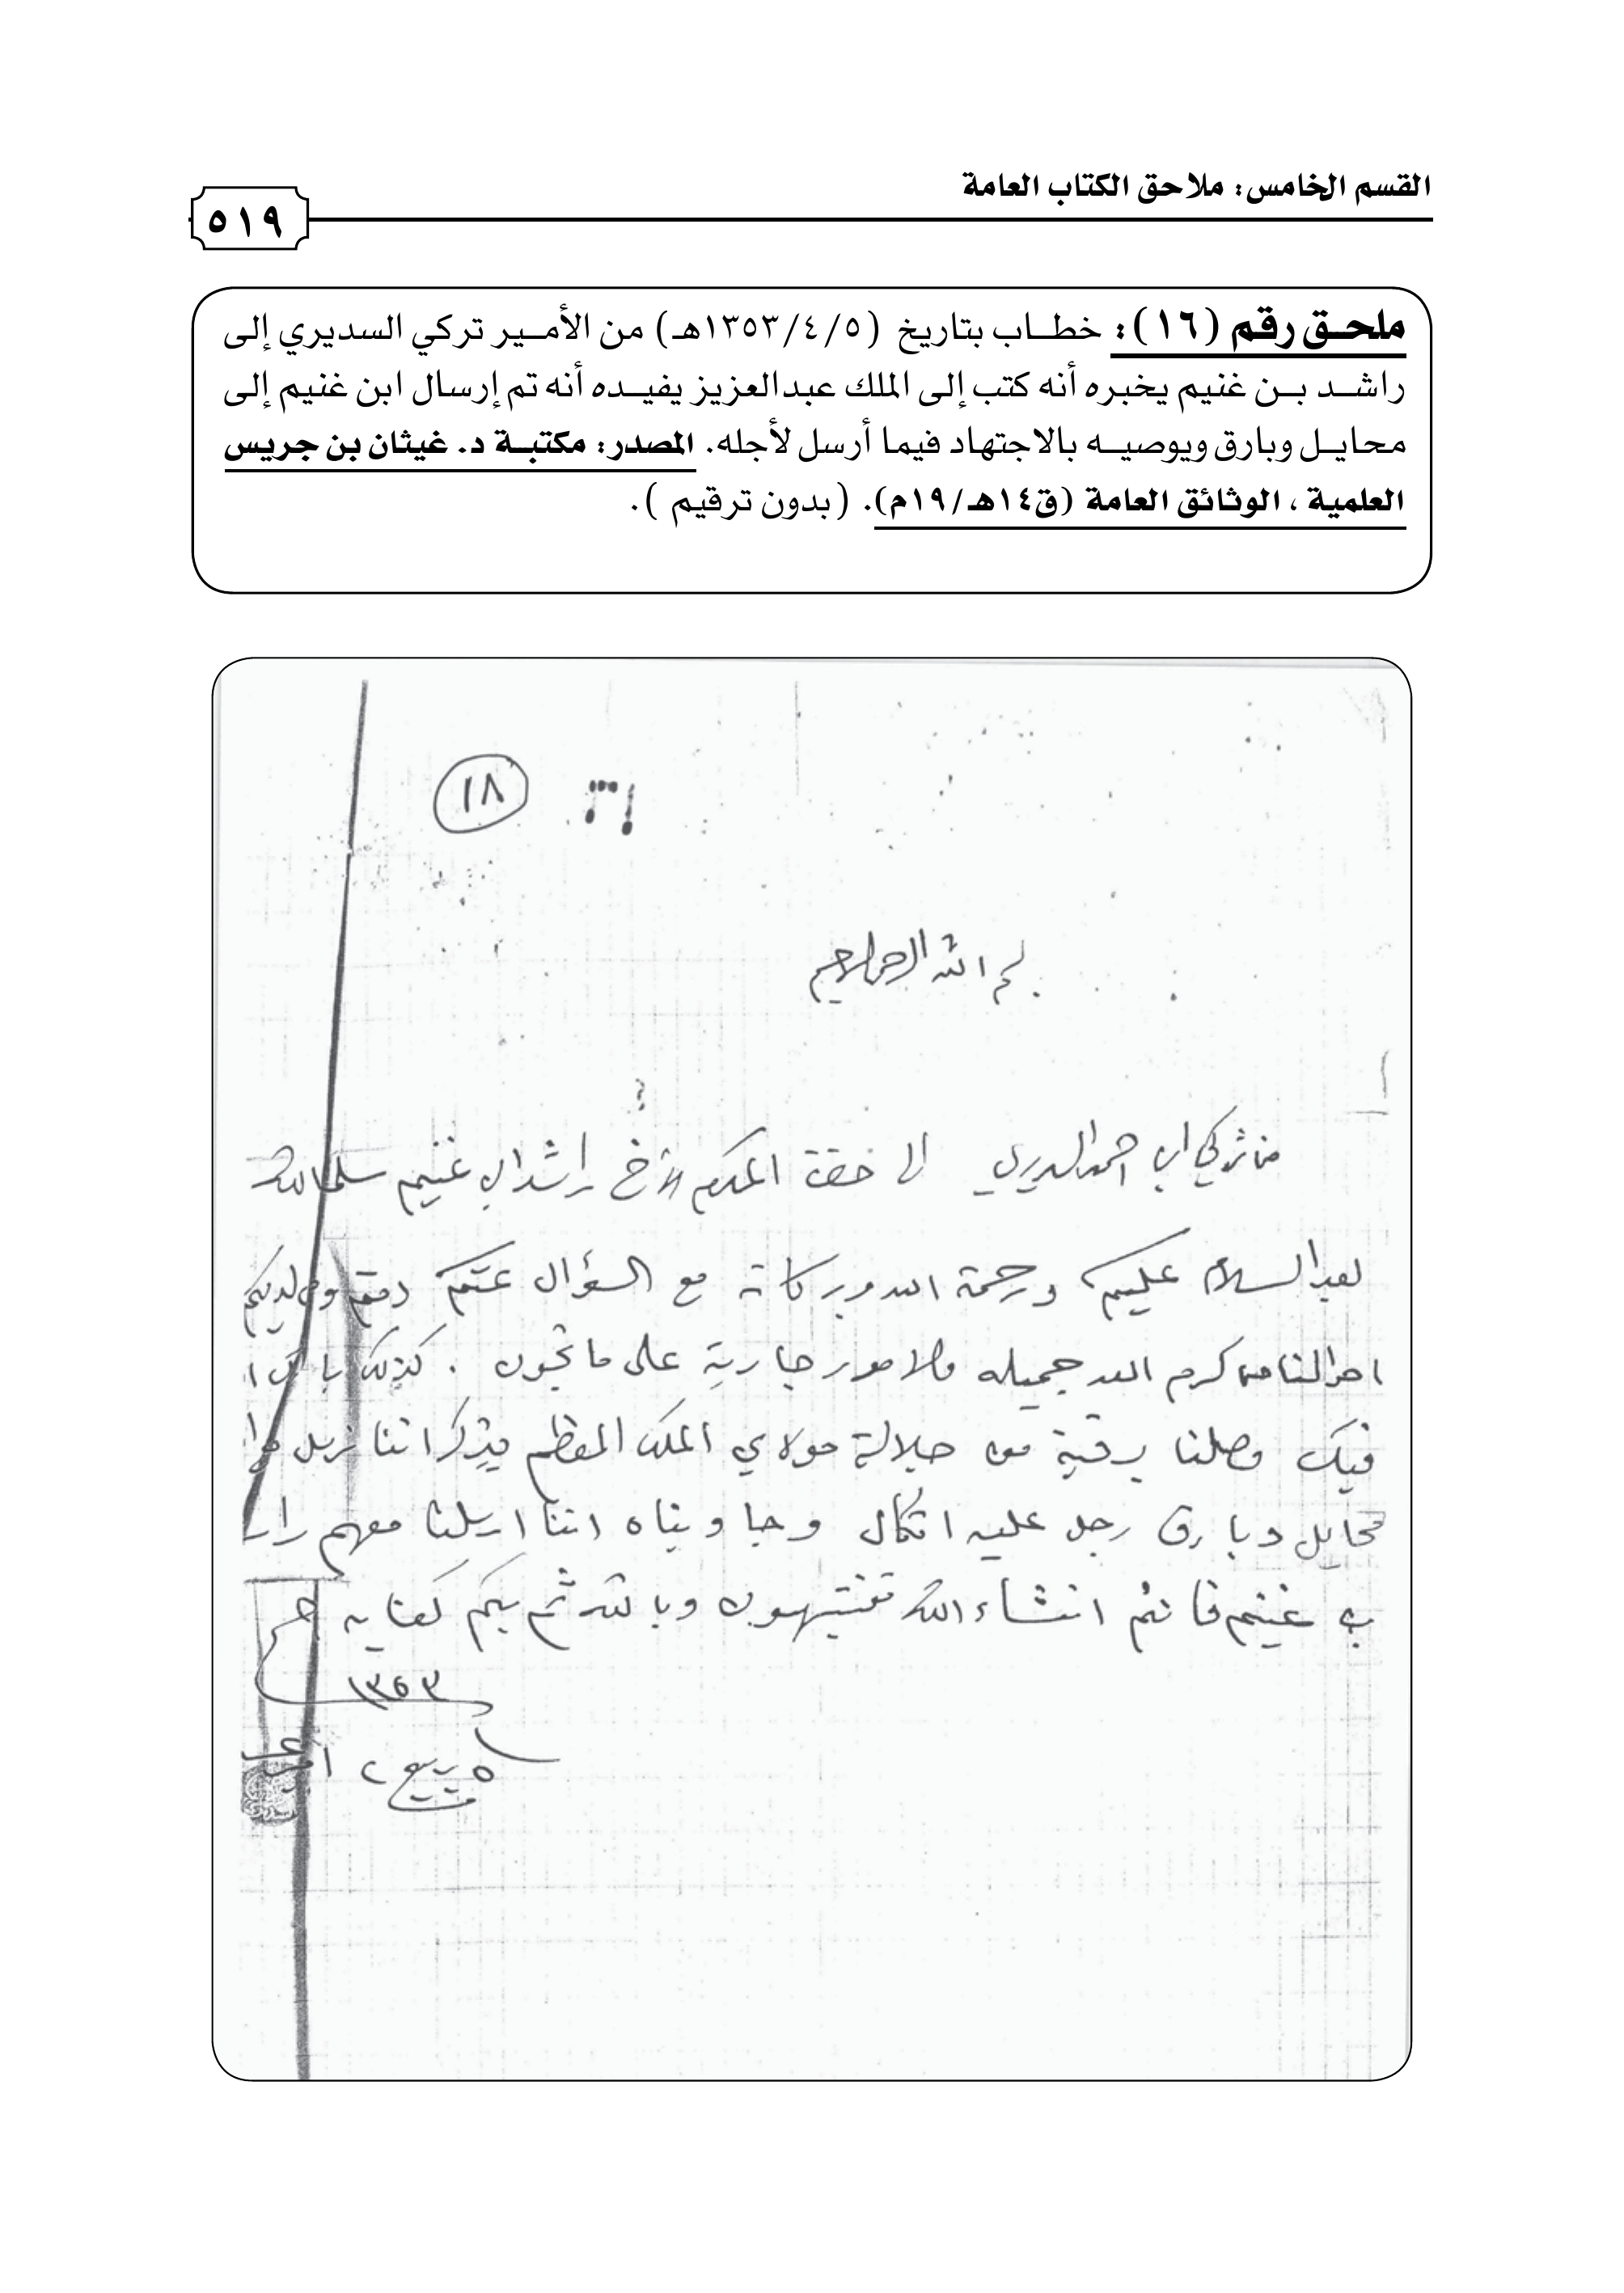 القسم الخامس: ملاحق الكتاب العامة
٥١٩
ملحـق رقم (١٦): خطـاب بتاريخ (١٣٥٣/٤/٥هـ) من الأمـير تركي السديري إلى
راشـد بـن غنيم يخبره أنه كتب إلى الملك عبدالعزيز يفيـده أنه تم إرسال ابن غنيم إلى
محايـل وبارق ويوصيـه بالاجتهاد فيما أرسل لأجله. المصدر: مكتبـة د. غيثان بن جريس
العلمية ، الوثائق العامة (ق١٤هـ/١٩م). (بدون ترقيم ).
١٨
بسم الله الرحمن الرحيم
من تركي ابن احمد السديري الى حضرة المكرم الأخ راشد ابن غنيم سلمه الله
بعد السلام عليكم ورحمة الله وبركاته مع السؤال عنكم دمتم ومن لديكم
احوالنا من كرم الله جميله والامور جارية على ما تحبون . كذلك بارك ا
فيك وصلنا برقية من جلالة مولاي الملك المعظم يذكر اننا نرسل
محايل وبارق رجل عليه اتكال وجاوبناه اننا ارسلنا معهم را
بن غنيم فانتم انشاء الله تنتبهون وبالله ثم بكم كفايه
١٣٥٣
٥ ربيع ٢